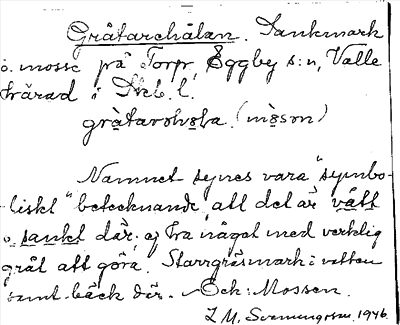 Gråtarehålan. Sankmark
o. mosse på Torp, Eggby s:n, Valle
härad i Skb. l.
(mòsən)
Namnet synes vara "symbo-
liskt" betecknande, att det är vått
o. sankt där. ej ha något med verklig
gråt att göra. Starrgräsmark i vatten
samt bäck där. Och: Mossen.
1946.